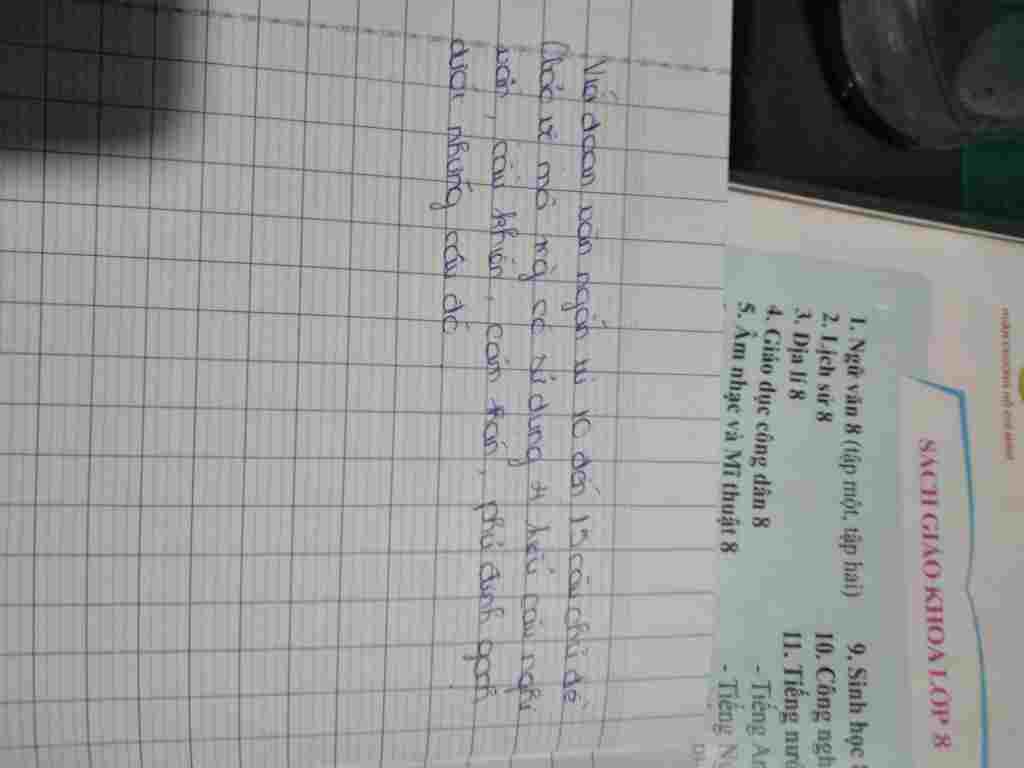 Viết đoạn văn ngắn từ 10 đến 15 câu chủ đề
về mà có sử dụng 4 kiểu câu nghi
vấn, cầu khiến, cảm thán, phủ định gạch
dưới những câu đó
SÁCH GIÁO KHOA LỚP 8
1. Ngữ văn 8 (tập một, tập hai)
2. Lịch sử 8
3. Địa lí 8
4. Giáo dục công dân 8
5. Âm nhạc và Mĩ thuật 8
9. Sinh học
10. Công ngh
11. Tiếng nướ
- Tiếng An
- Tiếng Ng